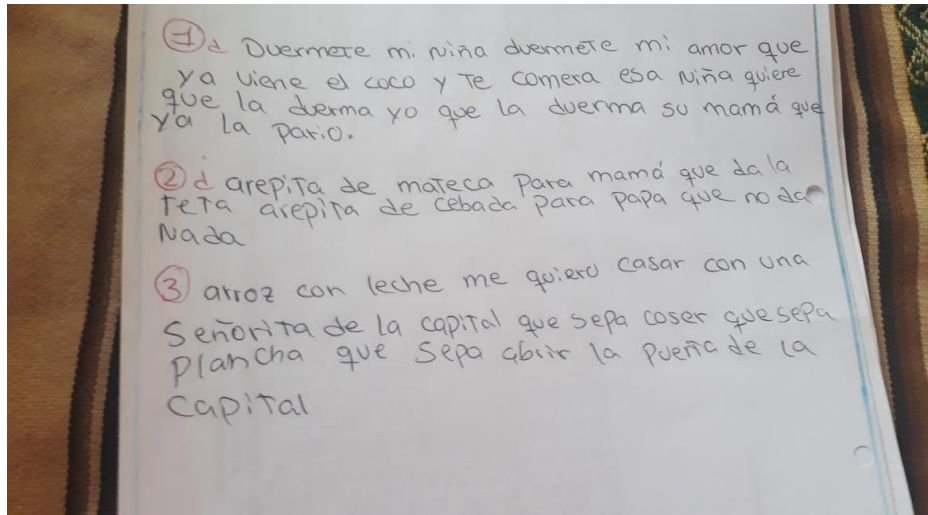 ① d Duermete mi niña duermete mi amor que
ya viene el coco y te comera esa niña quiere
que la duerma yo que la duerma su mamá que
ya la pario.
② d arepita de mateca para mamá que da la
teta arepita de cebada para papa que no da
nada
③ arroz con leche me quiero casar con una
Señorita de la capital que sepa coser que sepa
plancha que sepa abrir la puerta de la
capital